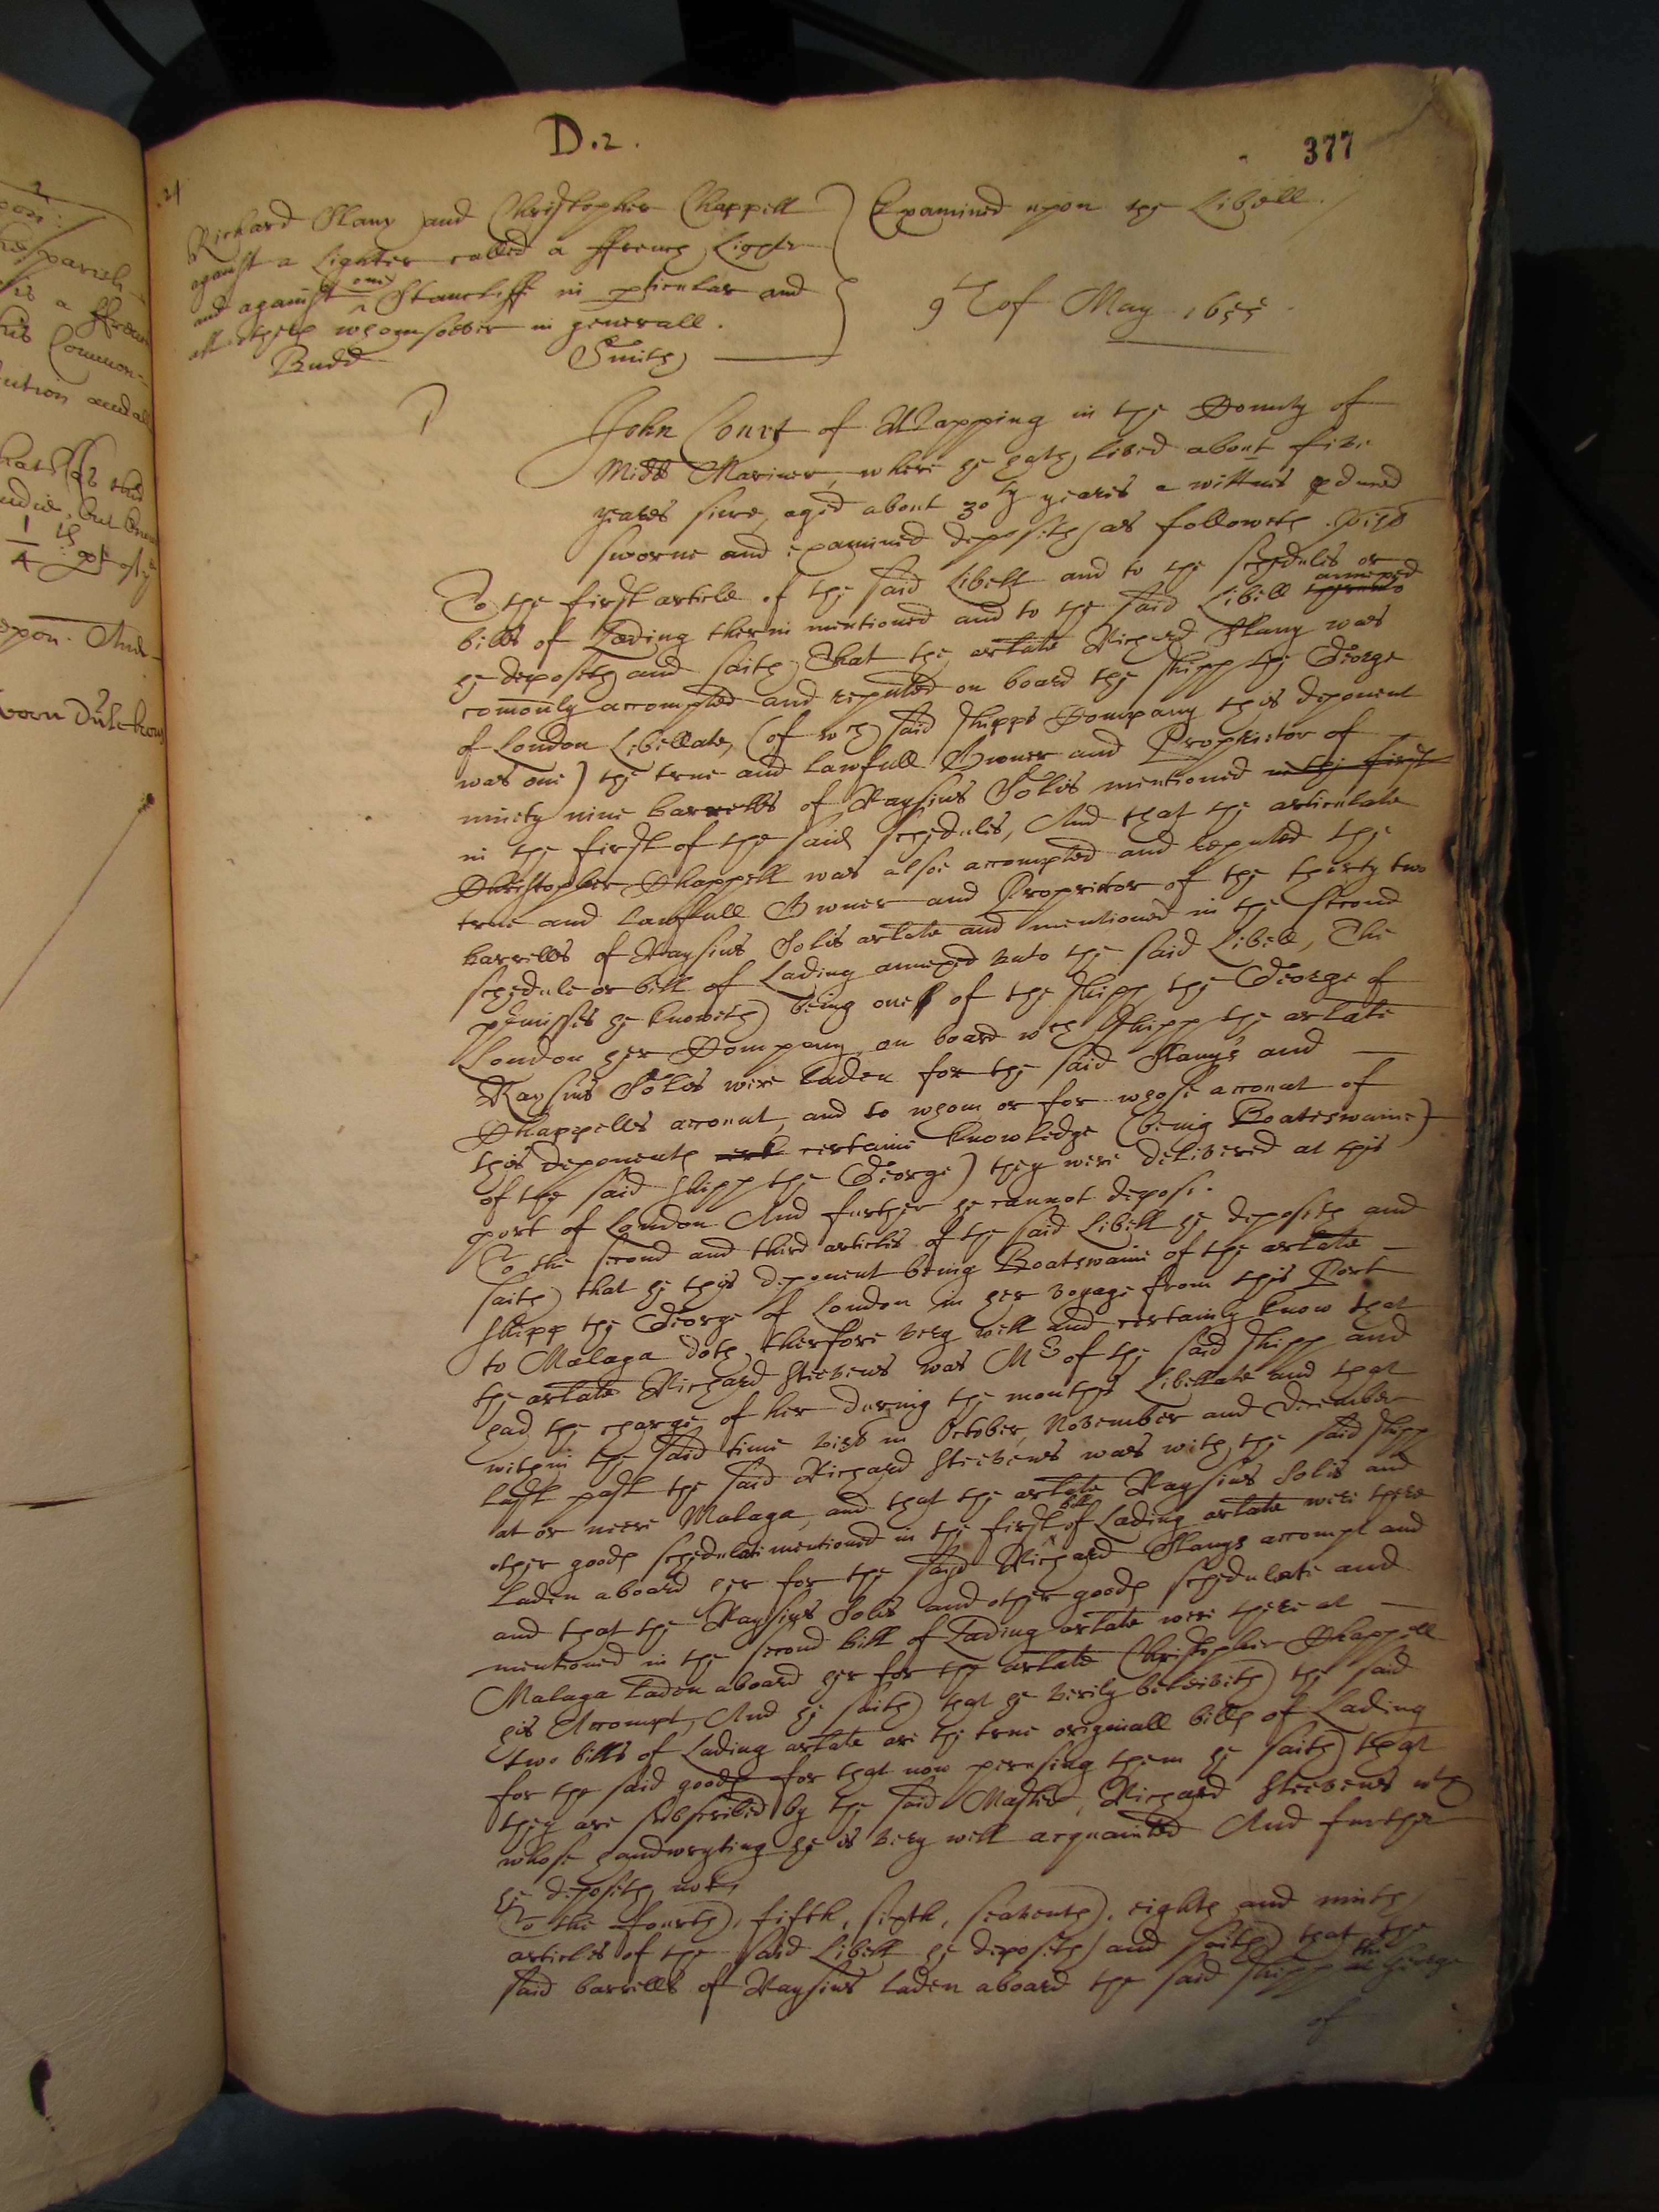 D.2.
377
Richard Slany and Christopher Chappell
against a Lighter called a ffrench Lighter
and against one Stancliff in pticular and
all others whomsoever in generall.
Budd Smith
Examined upon the Libell.
9th of May 1655.
John Court of Wapping in the County of
Midd Mariner, where he hath lived about five
yeares since, aged about 30ty yeares a wittnes pduced
sworne and examined deposeth as followeth. vizt
To the first article of the said Libell and to the schedules or
bills of Lading therin mentioned and to the said Libell thereto annexed
he deposeth and saith That the arlate Richard Slany was
comonly accompted and reputed on board the shipp the George
of London Libellate, (of wch said shipps Company this deponent
was one) the true and lawfull Owner and Proprietor of
ninety nine barrells of Raysins Solis mentioned in the first
in the first of the said schedules, And that the articulate
Christopher Chappell was alsoe accompted and reputed the
true and lawfull Owner and Proprietor of the thirty two
barrells of Raysins Solis arlate and mentioned in the second
schedule or bill of Lading annexed unto the said Libell, The
pmisses he knoweth being one of the shipp the George of
London her Company, on board wch shipp the arlate
Raysins Solis were laden for the said Slany's and
Chappells account, and to whom or for whose account of
this deponents certaine knowledge (being Boateswaine)
of the said shipp the George) they were delivered at this
port of London And further he cannot depose.
To the second and third articles of the said Libell he deposeth and
saith that he this deponent being Boatswaine of the arlate
shipp the George of London in her voyage from this Port
to Malaga doth therfore very well and certainly know that
the arlate Richard Steevens was Mr of the said shipp and
had the charge of her during the months Libellate and that
within the said time vizt in October, November and December
last past the said Richard Steevens was with the said shipp
at or neere Malaga, and that the arlate Raysins Solis and
other goods schedulate mentioned in the first bill of Lading arlate were there
laden aboard her for the said Richard Slanys accompt and
and that the Raysins Solis and other goods schedulate and
mentioned in the second bill of Lading arlate were there at
Malaga laden aboard her for the arlate Christopher Chappell
his Accompt, And he saith that he verily beleiveth the said
two bills of Lading arlate are the true originall bills of Lading
for the said goods for that now perusing them he saith that
they are subscribed by the said Master, Richard Steevens wth
whose handwryting he is very well acquainted And further
he deposeth not,
To the fourth, fifth, sixth, seaventh, eighth and ninth
articles of the said Libell he deposeth and saith that the
said barrells of Raysins laden aboard the said shipp the George
of